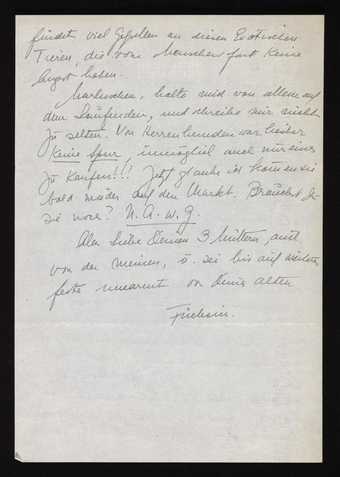 findet viel Gefallen an diesen Exotischen
Tieren, die vom Menschen fast keine
Angst haben.
halte mich von allem auf
dem Laufenden, und schreibe mir nicht
zu selten. Von Herrenhemden war bisher
keine Spur, unmöglich auch nur eines
zu kaufen!!! Jetzt glaube ich kommen sie
bald wieder auf den Markt. Brauchst Du
sie noch? U. A. w. g.
Alles Liebe Deinen 3 Müttern, auch
von den meinen, u. sei bis auf weiteres
feste umarmt von Deiner alten